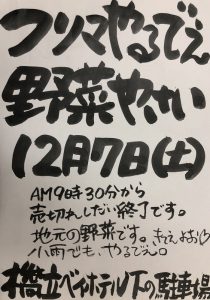 フリマやるでえ
野菜やさい
12月7日(土)
AM9時30分から
売切れしだい終了です。
地元の野菜です。きてえよおいで
小雨でも、やるでえ。
橋立ベイホテル下の駐車場